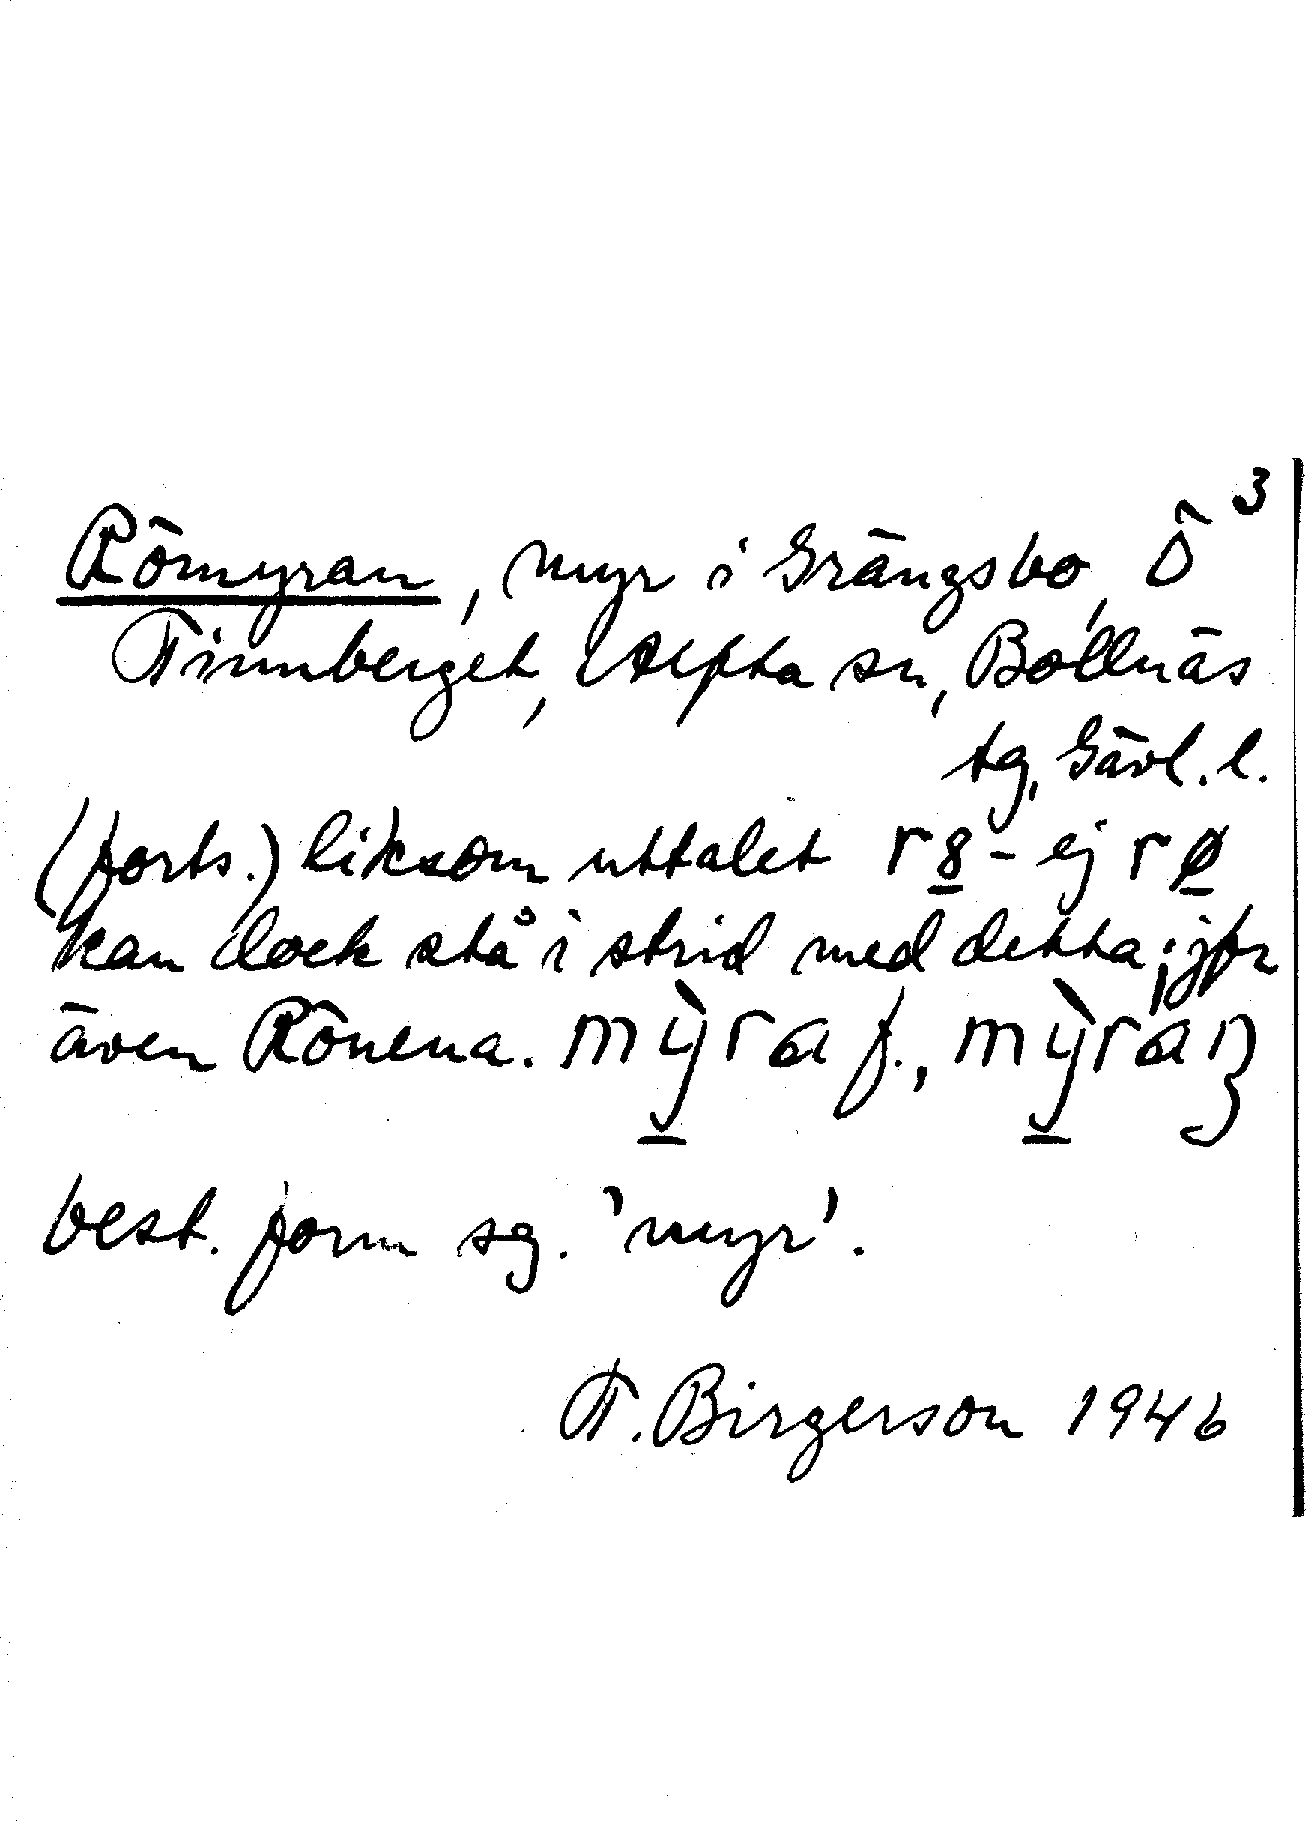 3
Römyran, myr i Grängsbo, Ö
Finnberget, Alfta sn, Bollnäs
tg, Gävl. l.
(forts.) liksom uttalet r8 - ej rø
kan dock stå i strid med detta; jfr
även Rönena. mỳra f., mỳran
best. form sg. 'myr'.
F. Birgerson 1946